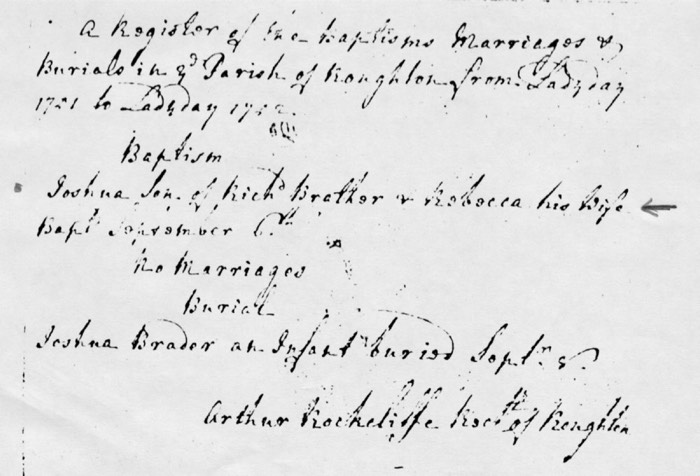 A Register of the Baptisms Marriages &
Burials in ye Parish of Roughton from Ladyday
1751 to Ladyday 1752
Baptism
Joshua Son of Richd Brather & Rebecca his Wife
Bapt September 6th
No Marriages
Burial
Joshua Brader an Infant buried Septr 8
Arthur Rockcliffe Rectr of Roughton